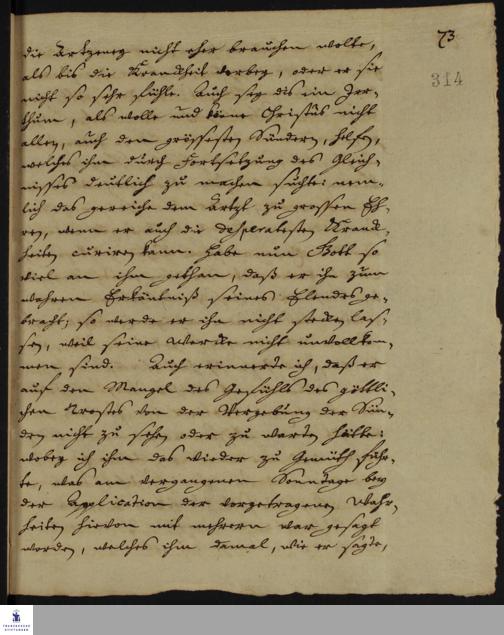 73
314
die Artzeney nicht eher brauchen wolte,
als bis die Kranckheit vorbey, oder er sie
nicht so sehr fühle. Auch sey dis ein Irr-
thum, als wolle und könne Christus nicht
allen, auch den grössesten Sündern, helfen,
welches ihm durch Fortsetzung des Gleich-
nisses deutlich zu machen suchte: nem-
lich das gereiche dem Artzt zu grossen Eh-
ren, wenn er auch die desperatesten Kranck-
heiten curiren kann. Habe nun Gott so
viel an ihm gethan, daß er ihn zum
wahren Erkäntniß seines Elendes ge-
bracht; so werde er ihn nicht stecken las-
sen, weil seine Wercke nicht unvollkom-
men sind. Auch erinnerte ich, daß er
auf den Mangel des Gefühls des göttli-
chen Trostes von der Vergebung der Sün-
den nicht zu sehen oder zu warten hätte:
wobey ich ihm das wieder zu Gemüth führ-
te, was am vergangenen Sonntage bey
der Application der vorgetragenen Wahr-
heiten hievon mit mehrern war gesagt
worden, welches ihm damal, wie er sagte,
FRANCKESCHE
STIFTUNGEN